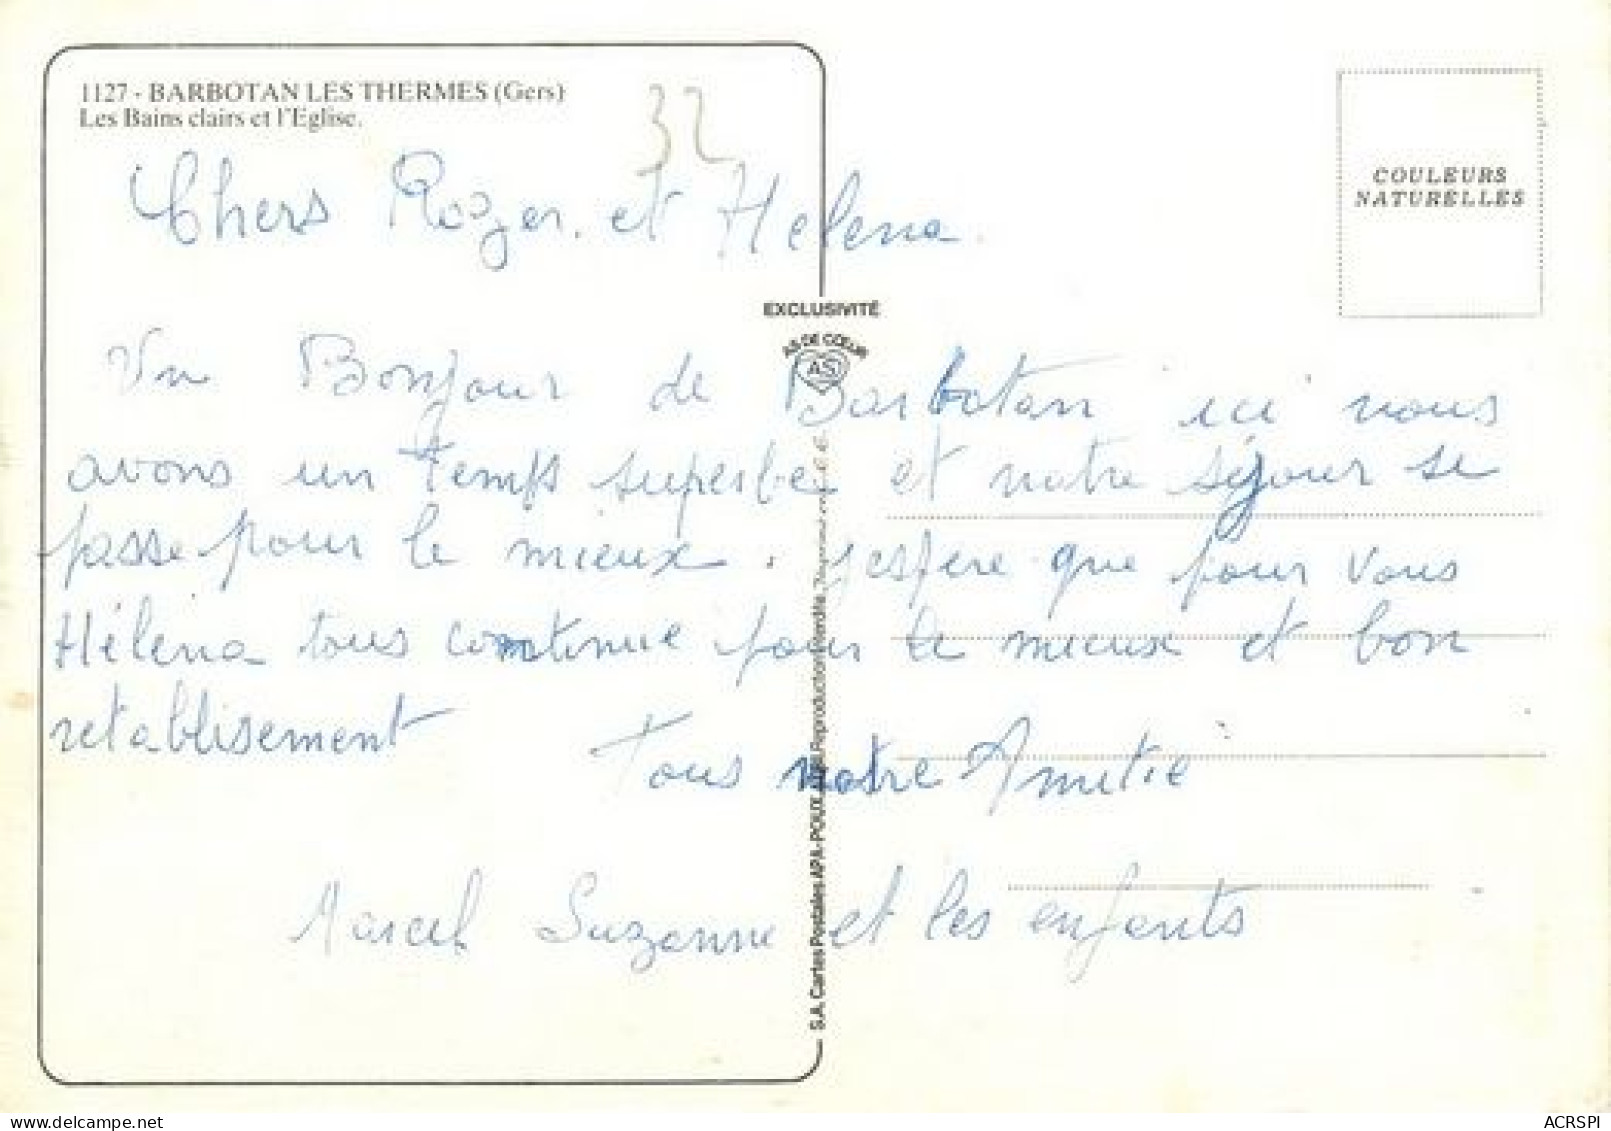 1127 - BARBOTAN LES THERMES (Gers)
Les Bains clairs et l'Eglise.
32
COULEURS
NATURELLES
Chers Roger. et Helena.
EXCLUSIVITÉ
AS DE CŒUR
AS
Un Bonjour de Barbotan ici nous
avons un temps superbe et notre séjour se
passe pour le mieux. j'espere que pour vous
Hélèna tous continue pour le mieux et bon
retablisement
Tous notre Amitié
Marcel Suzanne et les enfants
S.A. Cartes Postales APA-POUX Reproduction interdite. Imprimé C.E.E.
ACRSPI